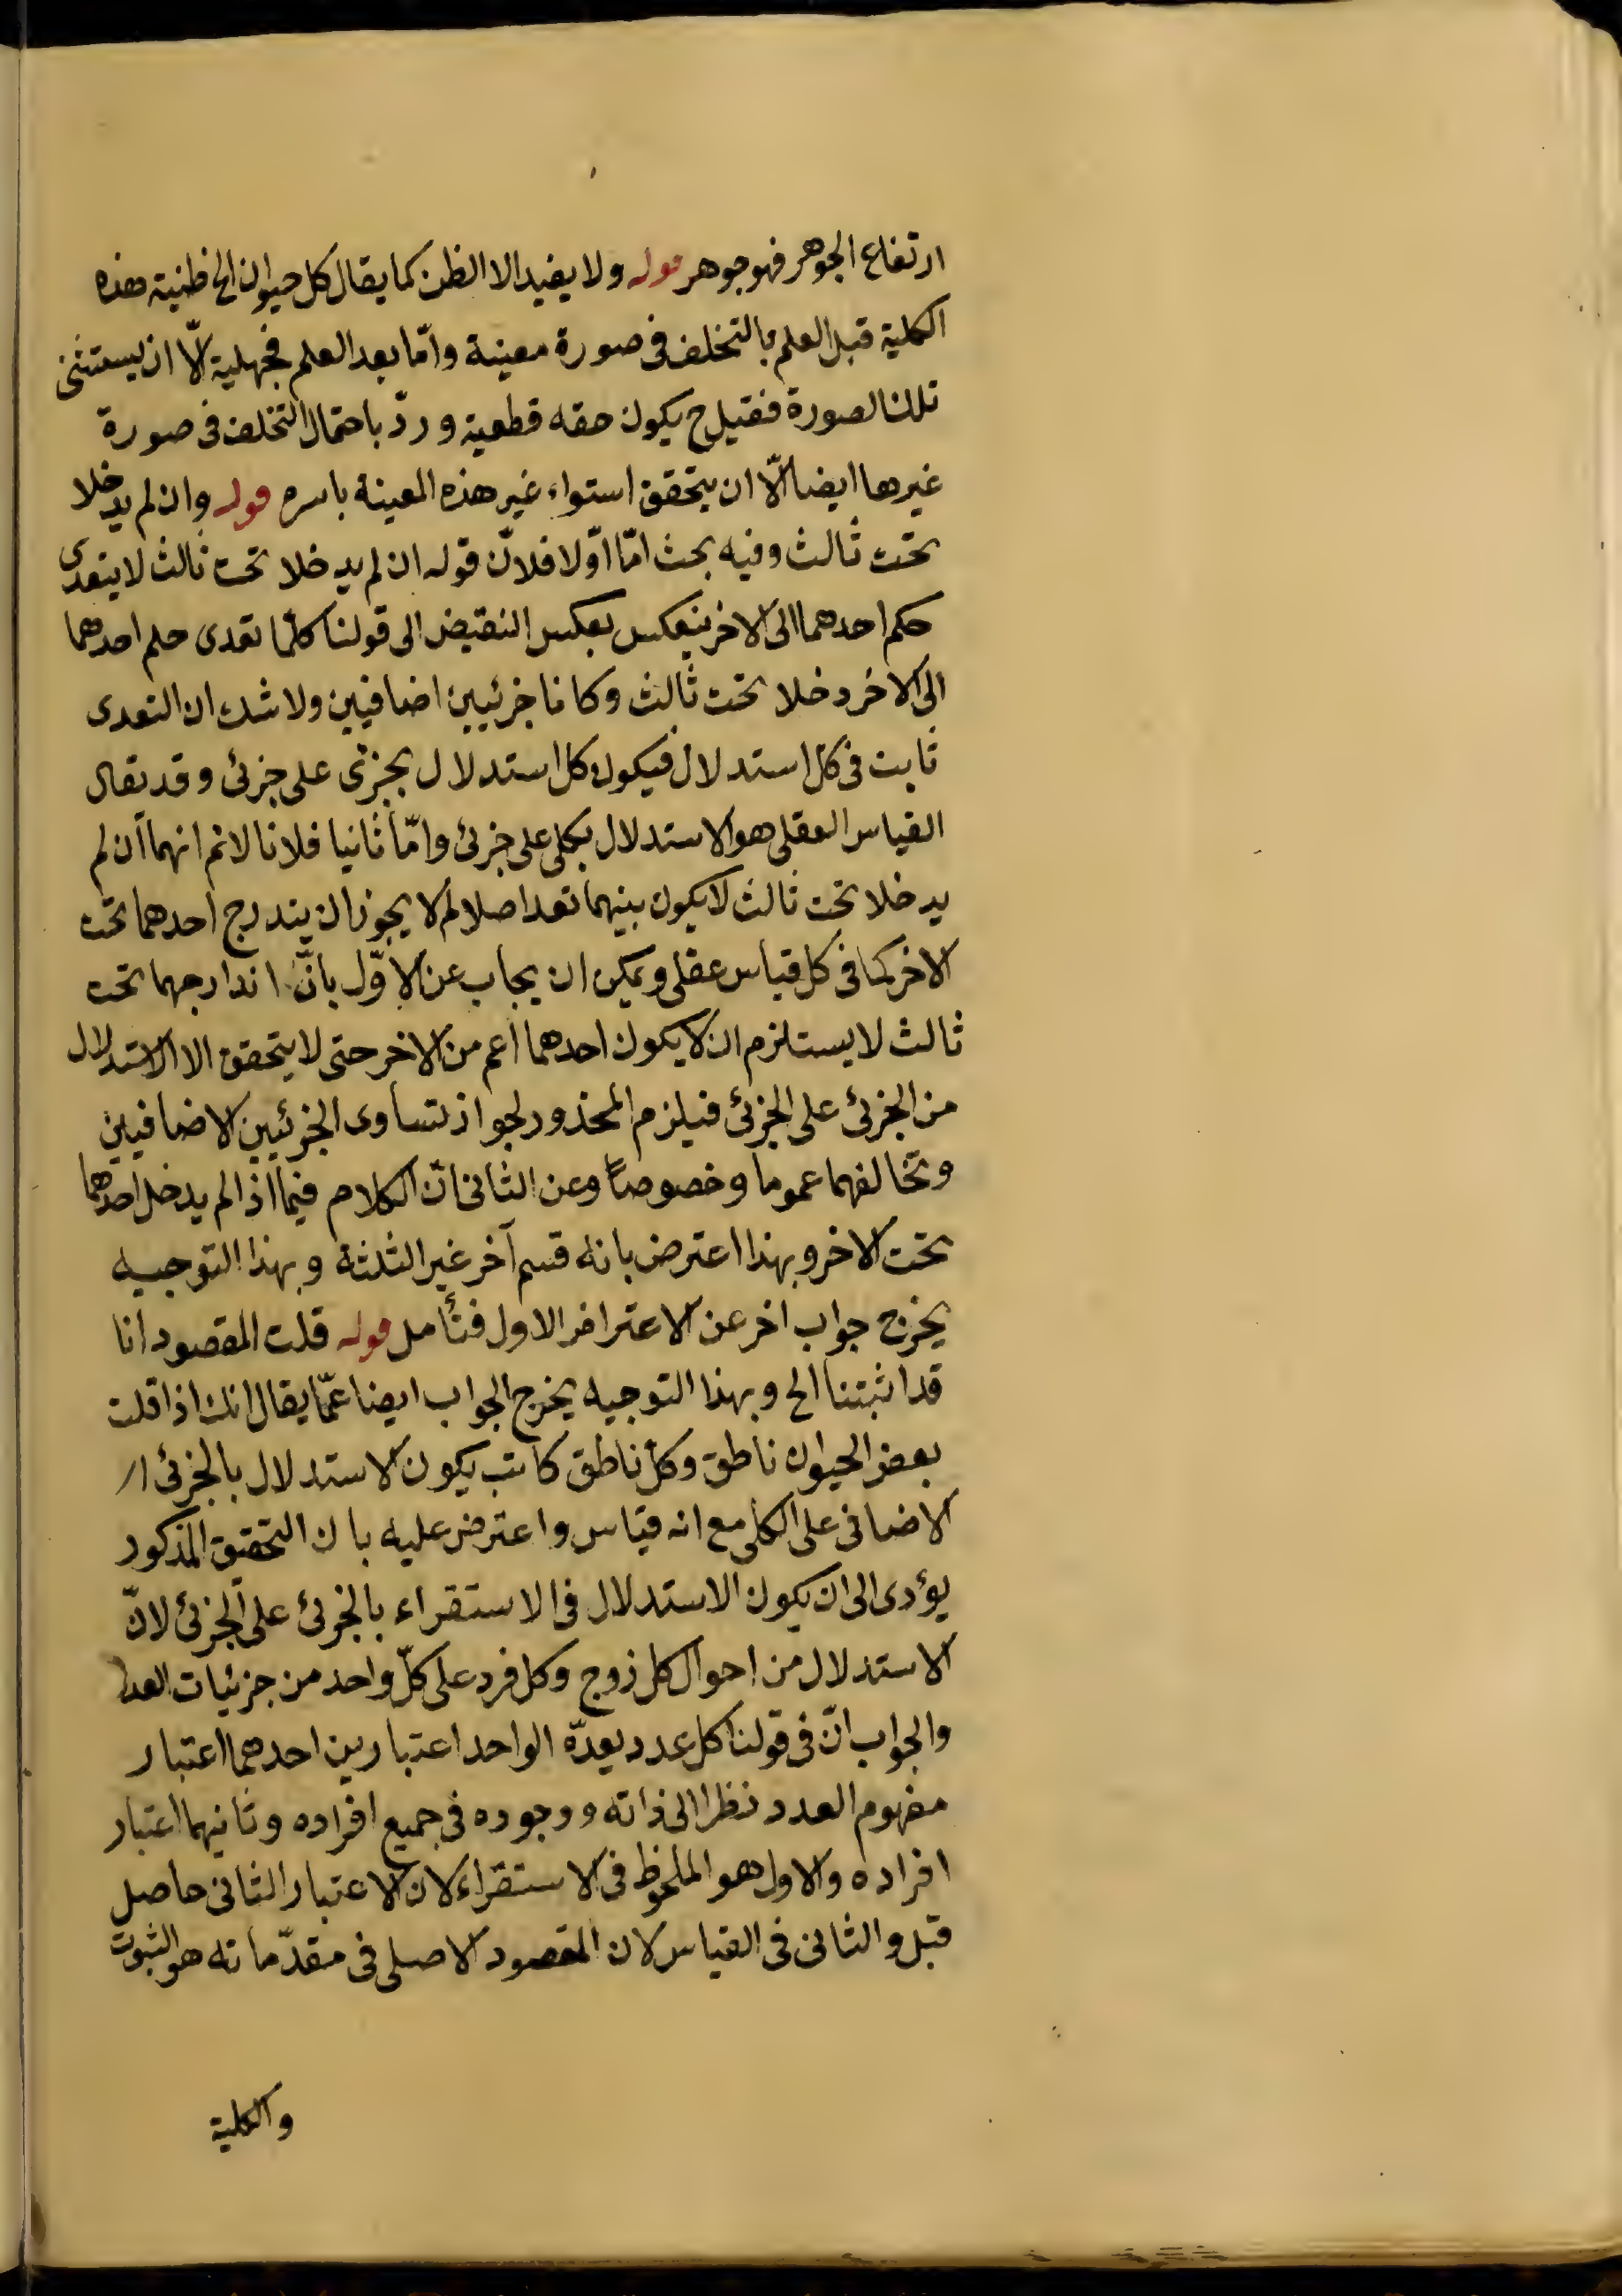 ارتفاع الجوهر فهو جوهر قوله ولا يفيد الا الظن كما يقال كل حيوان الخ ظنية هذه
الكلية قبل العلم بالتخلف فى صورة معينة وامّا بعد العلم فجهلية الّا ان يستثنى
تلك الصورة فقيل ح يكون حقه قطعية وردّ باحتمال التخلف فى صورة
غيرها ايضا الّا ان يتحقق استواء غير هذه المعينة باسره قوله وان لم يدخلا
تحت ثالث وفيه بحث امّا اوّلا فلانّ قوله ان لم يدخلا تحت ثالث لا يتعدى
حكم احدهما الى الاخر ينعكس بعكس النقيض الى قولنا كلّما تعدى حكم احدهما
الى الاخر دخلا تحت ثالث وكانا جزئيين اضافيين ولا شك ان التعدى
ثابت فى كل استدلال فيكون كل استدلال بجزئى على جزئى وقد يقال
القياس العقلى هو الاستدلال بكلى على جزئى وامّا ثانيا فلانا لانم انهما ان لم
يدخلا تحت ثالث لا يكون بينهما تعد اصلا لم لا يجوز ان يندرج احدهما تحت
الاخر كما فى كل قياس عقلى ويمكن ان يجاب عن الاوّل بانّ اندارجهما تحت
ثالث لا يستلزم ان لا يكون احدهما اعم من الاخر حتى لا يتحقق الا الاستدلال
من الجزئى على الجزئى فيلزم المحذور لجواز تساوى الجزئيين الاضافيين
وتخالفهما عموما وخصوصاً وعن الثانى انّ الكلام فيما اذا لم يدخل احدهما
تحت الاخر وبهذا اعترض بانه قسم آخر غير الثلثة وبهذا التوجيه
يخرج جواب اخر عن الاعتراض الاول فتأمل قوله قلت المقصود انا
قد اثبتنا الخ وبهذا التوجيه يخرج الجواب ايضا عمّا يقال انك اذا قلت
بعض الحيوان ناطق وكل ناطق كاتب يكون الاستدلال بالجزئى
الاضافى على الكلى مع انه قياس واعترض عليه بان التحقيق المذكور
يؤدى الى ان يكون الاستدلال فى الاستقراء بالجزئى على الجزئى لانّ
الاستدلال من احوال كل زوج وكل فرد على كلّ واحد من جزئيات العدد
والجواب انّ فى قولنا كل عدد يعدّه الواحد اعتبارين احدهما اعتبار
مفهوم العدد نظرا الى ذاته ووجوده فى جميع افراده وثانيهما اعتبار
افراده والاول هو الملحوظ فى الاستقراء لان الاعتبار الثانى حاصل
قبل والثانى فى القياس لان المقصود الاصلى فى مقدّماته هو الثبوت
والكلية